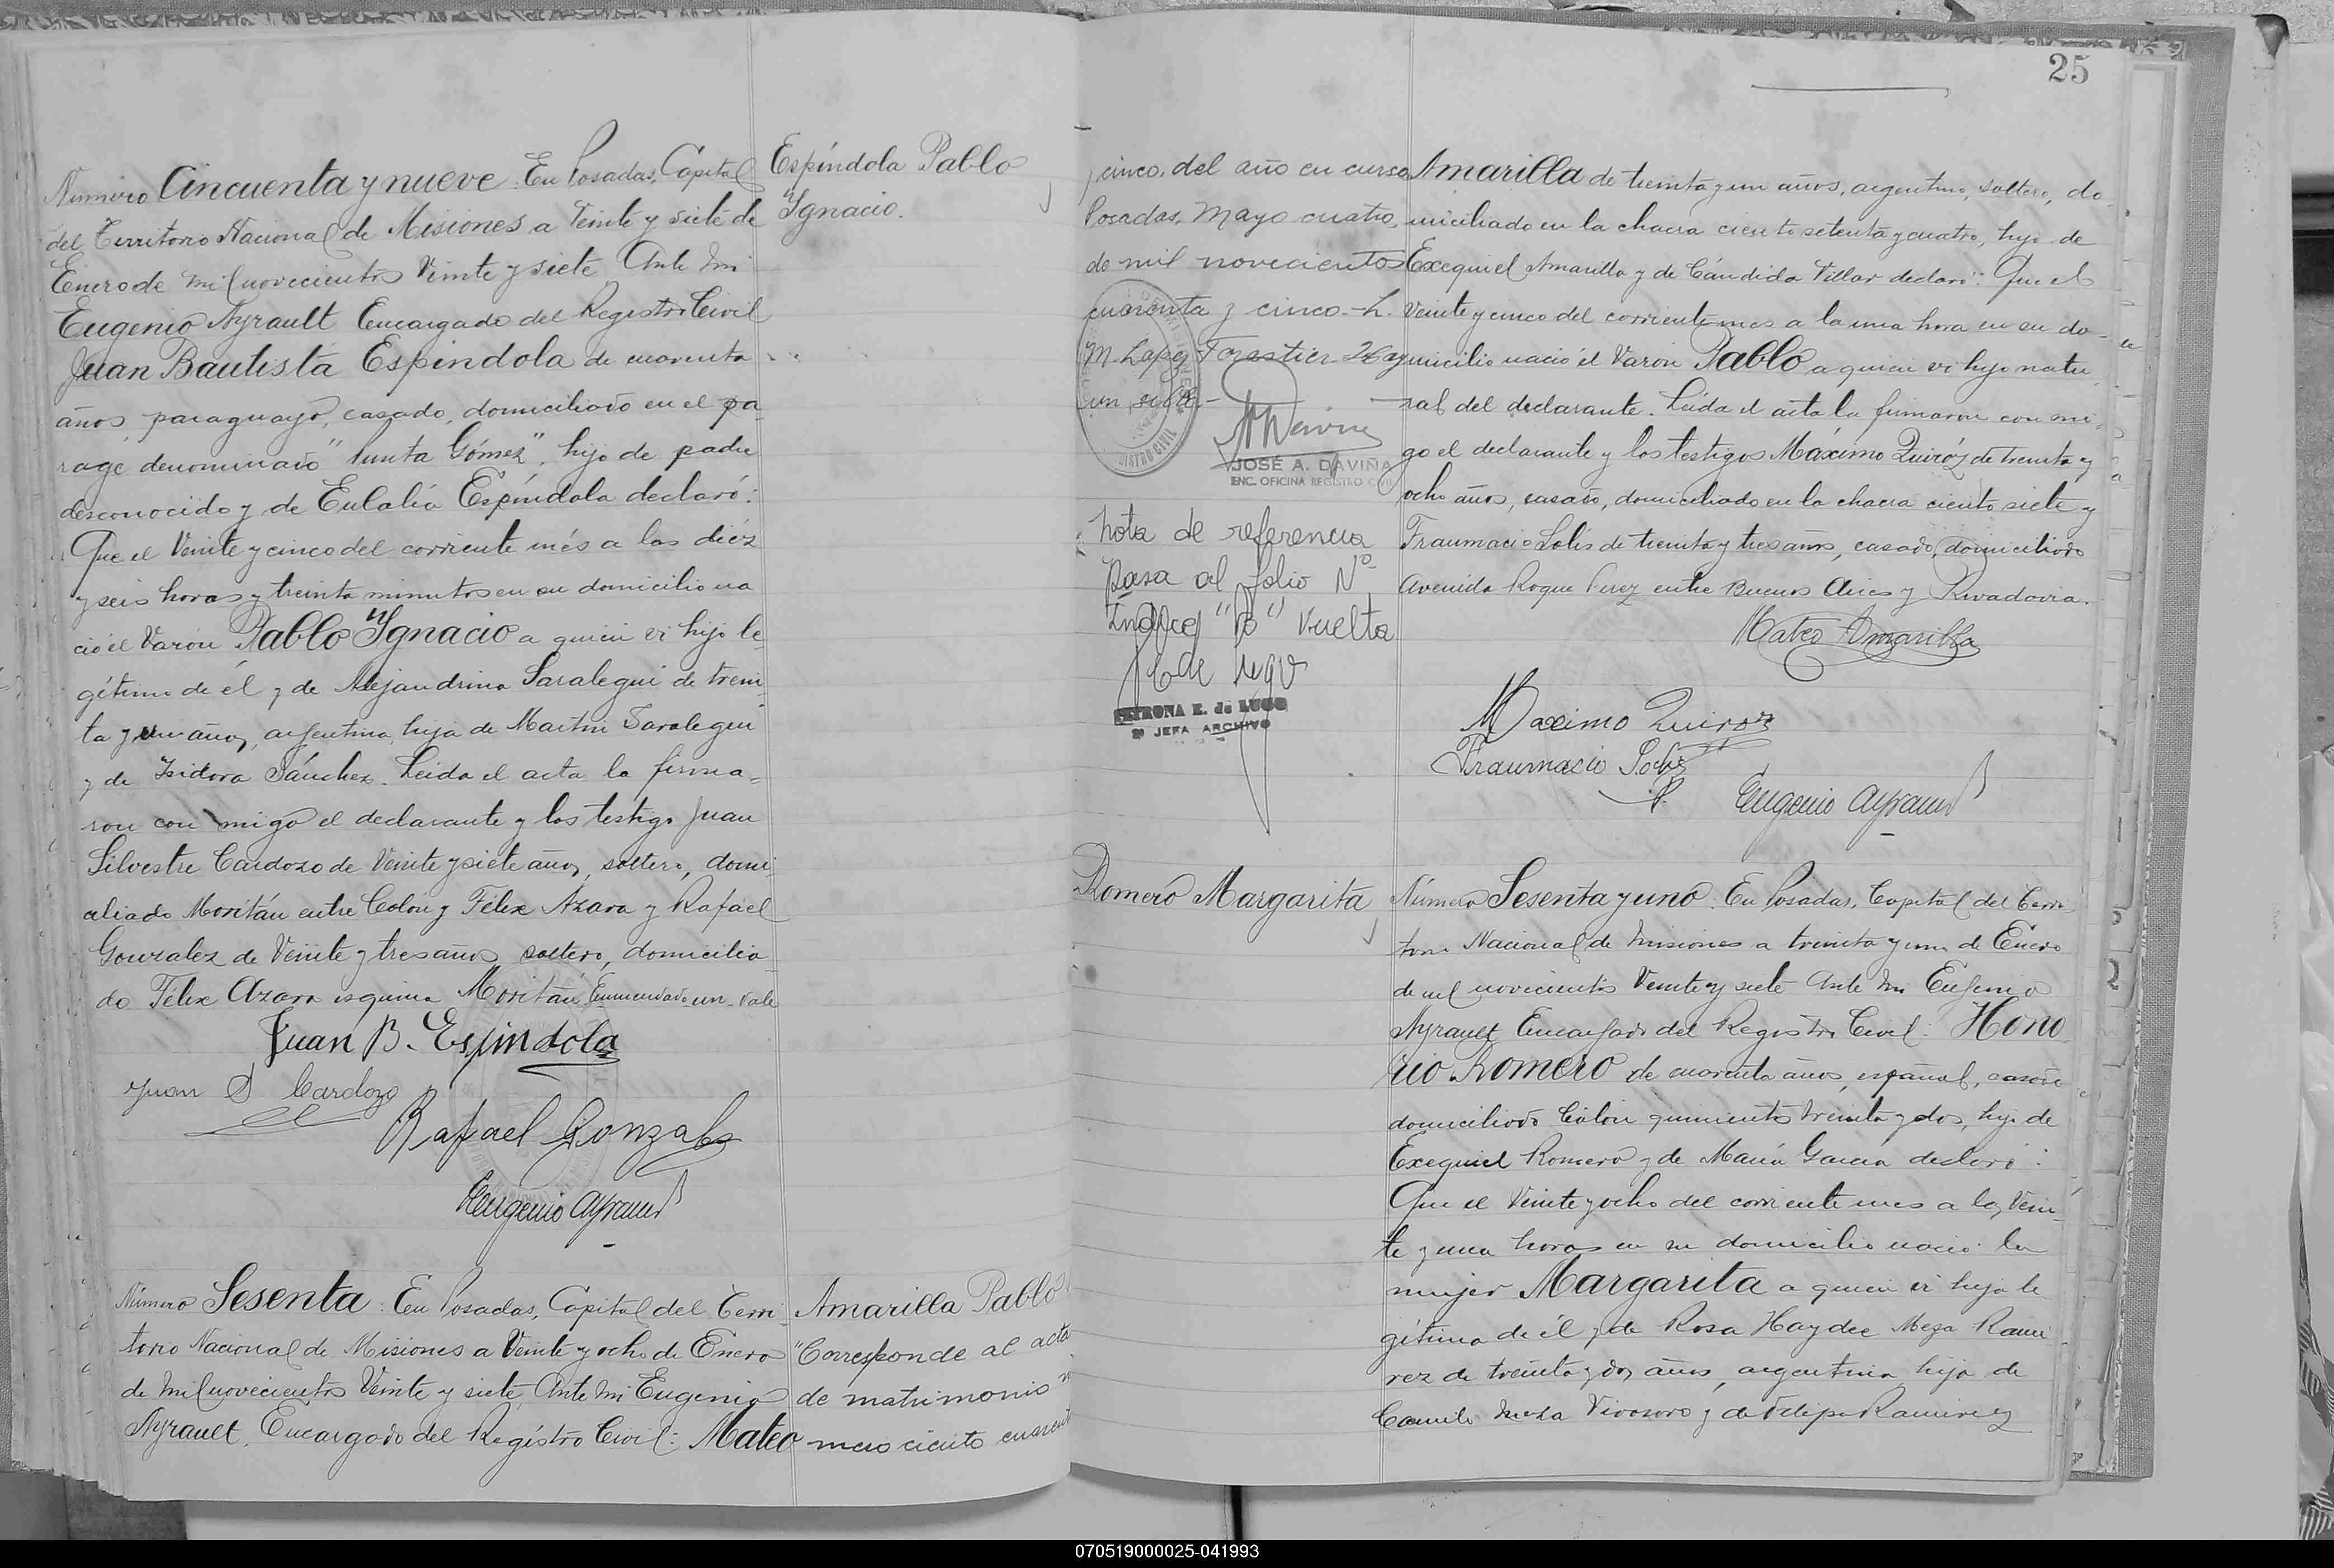 Número Cincuenta y nueve: En Posadas, Capital
del Territorio Nacional de Misiones a Veinte y siete de
Enero de mil novecientos Veinte y siete Ante mi
Eugenio Ayrault Encargado del Registro Civil
Juan Bautista Espíndola de cuarenta
años, paraguayo, casado, domiciliado en el pa
rage denominado "Punta Gómez", hijo de padre
desconocido y de Eulalia Espíndola declaró:
Que el Veinte y cinco del corriente més a las diéz
y seis horas y treinta minutos en su domicilio na
ció el Varon Pablo Ygnacio a quien vi hijo le
gítimo de él y de Alejandrina Saralegui de trein
ta y un años, argentina, hija de Martin Saralegui
y de Isidora Sánchez. Leida el acta la firma=
ron con migo el declarante y los testigo Juan
Silvestre Cardozo de Veinte y siete años, soltero, domi
ciliado Moritán entre Colón y Félix Azara y Rafael
Gonzalez de Veinte y tres años soltero, domicilia
do Félix Azara esquina Moritán Enmendado un - Vale
Juan B. Espindola
Juan S Cardozo
Rafael Gonzalez
Eugenio Ayrault
Espíndola Pablo
Ygnacio.
Número Sesenta: En Posadas, Capital del Terri
torio Nacional de Misiones a Veinte y ocho de Enero
de mil novecientos Veinte y siete, Ante mi Eugenio
Ayrault, Encargado del Registro Civil: Mateo
Amarilla Pablo
"Corresponde al acta
de matrimonio
mero ciento cuarent
25
y cinco, del año en curso
Posadas, Mayo cuatro,
de mil novecientos
cuarenta y cinco.-
M. Lopez Forastier - Hay
un sello.-
JOSÉ A. DAVIÑA
ENC. OFICINA REGISTRO CIVIL
Nota de referencia
Pasa al folio Nº
Indice "B" vuelta
PETRONA E. de LUGO
2ª JEFA ARCHIVO
Amarilla de treinta y un años, argentino, soltero, do
miciliado en la chacra ciento setenta y cuatro, hijo de
Exequiel Amarilla y de Cándida Villar declaró: Que el
Veinte y cinco del corriente mes a la una hora en su do-
micilio nació el Varon Pablo a quien vi hijo natu
ral del declarante. Leida el acta la firmaron con mi
go el declarante y los testigos Máximo Quiróz de treinta y
ocho años, casado, domiciliado en la chacra ciento siete y
Fraumacio Solis de treinta y tres años, casado, domiciliado
Avenida Roque Perez entre Buenos Aires y Rivadavia.
Mateo Amarilla
Maximo Quiroz
Fraumacio Solis
Eugenio Ayrault
Romero Margarita
Número Sesenta y uno: En Posadas, Capital del Terri
torio Nacional de Misiones a treinta y uno de Enero
de mil novecientos Veinte y siete Ante mi Eugenio
Ayrault Encargado del Registro Civil: Hono
rio Romero de cuarenta años, español, casado
domiciliado Colón quinientos treinta y dos, hijo de
Exequiel Romero y de María García declaró:
Que el Veinte y ocho del corriente mes a las Vein
te y una horas en su domicilio nació la
mujer Margarita a quien vi hija le
gítima de él y de Rosa Haydee Meza Rami
rez de treinta y dos años, argentina hija de
Camilo Meza y de Felipa Ramirez